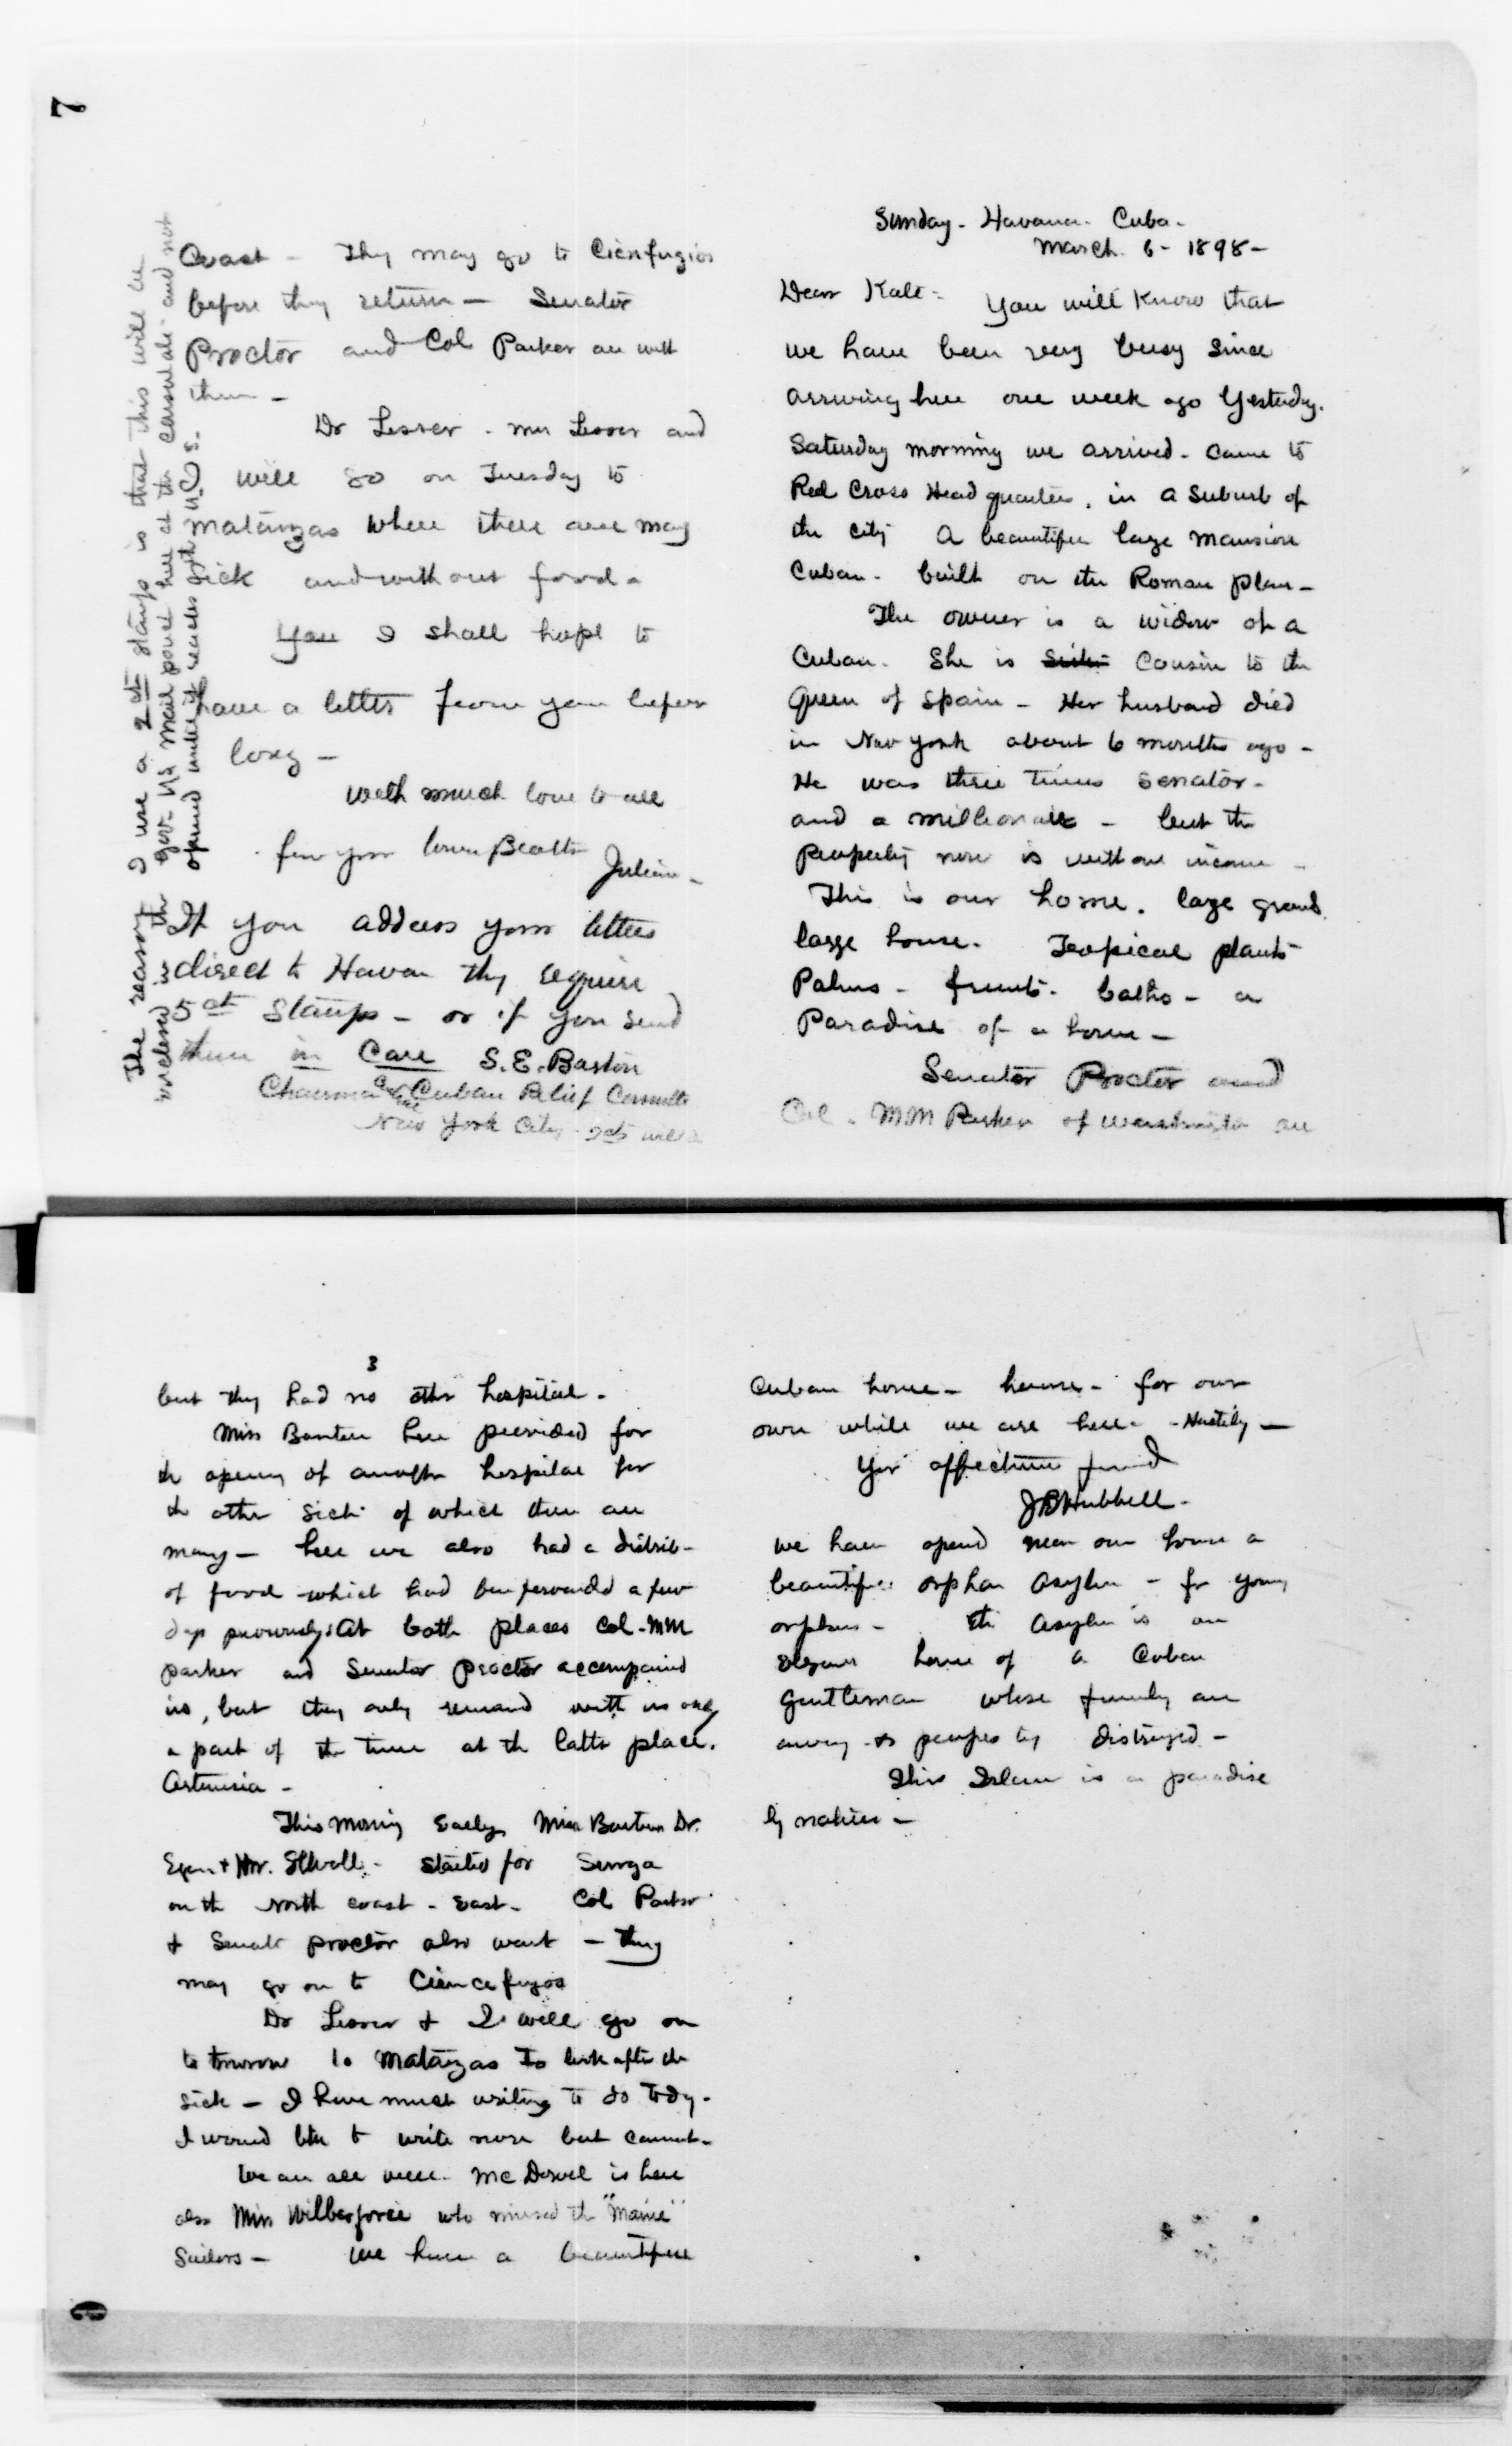 7
Coast - They may go to Cienfugios
before they return - Senator
Proctor and Col Parker are with
them -
Dr Lesser - Mrs Lesser and
I will go on Tuesday to
Matanzas where there are many
sick and without food -
You I shall hope to
have a letter from you before
long -
With much love to all
Julian -
If you address your letters
direct to Havan they require
5 ct Stamps - or if you send
them in Care S.E. Barton
Chairman Cuban Relief Committe
New York City - 2cts will
The reason I use a 2 ct stamps is that this will be
enclosed in the gov. US mail pouch here at the consulate and not
opened until it reaches the U.S.
Sunday - Havana - Cuba -
March 6 - 1898 -
Dear Kate - You will know that
we have been very busy since
arriving here one week ago Yesterday.
Saturday morning we arrived - came to
Red Cross Head quarters, in a suburb of
the city A beautiful large mansion
Cuban - built on the Roman plan -
The owner is a widow of a
Cuban. She is cousin to the
Queen of Spain - Her husband died
in New York about 6 months ago -
He was three times senator -
and a millionaire - but the
property now is without income -
This is our home. large ground
large house. Tropical plants
Palms - fruits - baths - a
Paradise of a home -
Senator Proctor and
Col. M M Parker of Washington are
3
but they had no other hospital -
Miss Barton here provided for
the opening of another hospital for
the other sick of which there are
many - here we also had a distrib-
of food which had been forwarded a few
days previously. At both places Col. MM
parker and Senator Proctor accompanied
us, but they only remand with us only
a part of the time at the latter place.
Artemisia -
This morning early, Miss Barton Dr.
Egan & Mr. Elwell - started for Sagua
on the North coast - East - Col Parker
& Senator Proctor also went - They
may go on to Ciencefugos
Dr Lesser & I will go on
to tomorrow to Matanzas to look after the
sick - I have much writing to do today -
I would like to write more but cannot -
We are all well. McDowel is here
also Miss Wilberforce who nursed the "Maine"
Sailors - We have a beautiful
Cuban home - house - for our
own while we are here - Hastily -
Your affection friend
J B Hubbell -
We have opend near our home a
beautiful orphan Asylum - for young
orphans - the Asylum is an
elegant home of a Cuban
Gentleman whose family are
away & property distroyed -
This Island is a paradise
by nature -